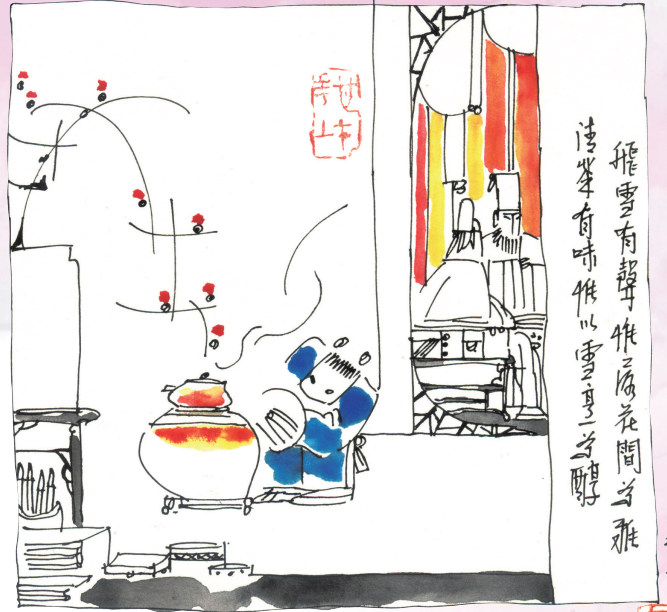 飛雪有聲惟落花間为雅
清茶有味惟以雪烹为醇